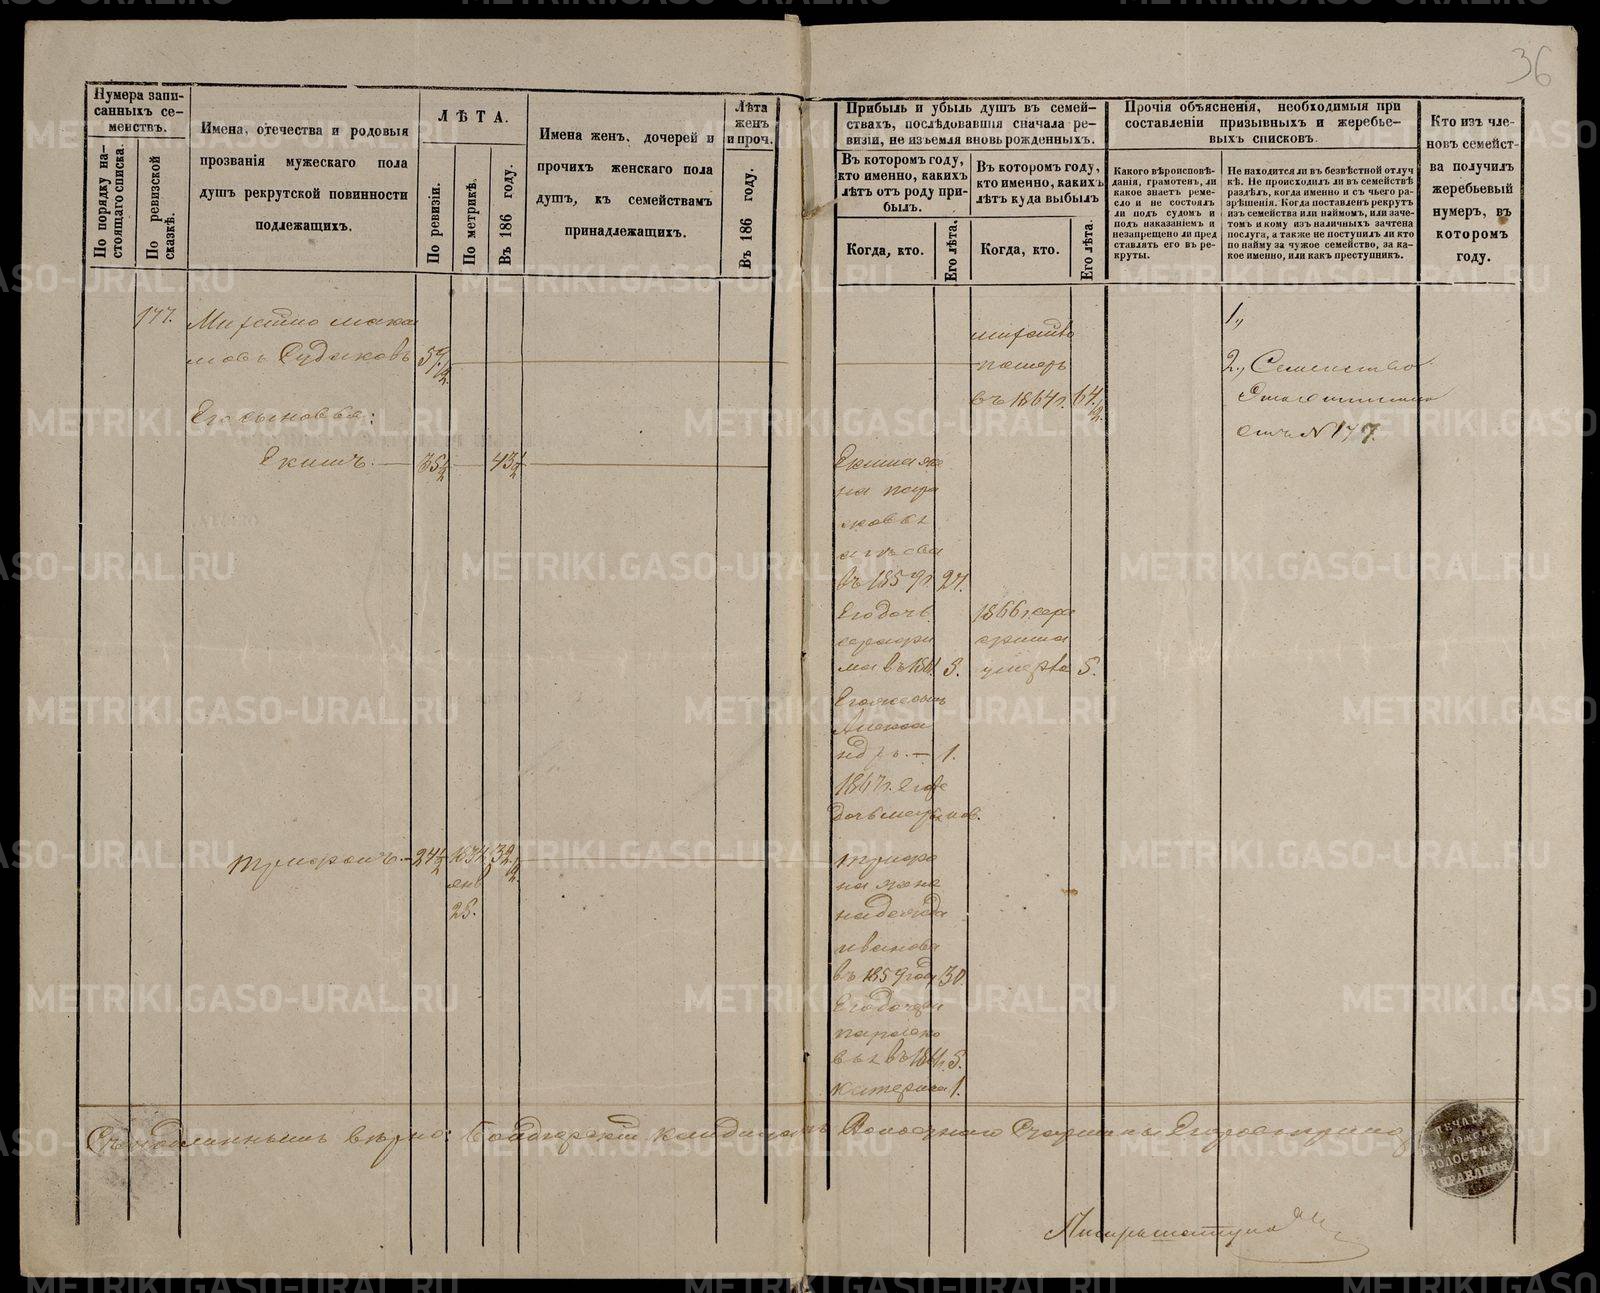 36
Нумера запи-
санныхъ се-
мействъ.
По порядку на-
стоящаго списка.
По ревизской
сказкѣ.
Имена, отечества и родовыя
прозванія мужескаго пола
душъ рекрутской повинности
подлежащихъ.
ЛѢТА.
По ревизіи.
По метрикѣ.
Въ 186 году.
Имена женъ, дочерей и
прочихъ женскаго пола
душъ, къ семействамъ
принадлежащихъ.
Лѣта
женъ
и проч.
Въ 186 году.
Прибыль и убыль душъ въ семей-
ствахъ, послѣдовавшія сначала ре-
визіи, не изъемля вновь рожденныхъ.
Въ которомъ году,
кто именно, какихъ
лѣтъ отъ роду при-
былъ.
Когда, кто.
Его лѣта.
Въ которомъ году,
кто именно, какихъ
лѣтъ куда выбылъ
Когда, кто.
Его лѣта.
Прочія объясненія, необходимыя при
составленіи призывныхъ и жеребье-
выхъ списковъ.
Какого вѣроисповѣ-
данія, грамотенъ, ли
какое знаетъ реме-
сло и не состоялъ
ли подъ судомъ и
подъ наказаніемъ и
незапрещено ли пред
ставлять его въ ре-
круты.
Не находится ли въ безвѣстной отлуч
кѣ. Не происходилъ ли въ семействѣ
раздѣлъ, когда именно и съ чьего ра-
зрѣшенія. Когда поставленъ рекрутъ
изъ семейства или наймомъ, или заче-
томъ и кому изъ наличныхъ зачтена
послуга, а также не поступилъ ли кто
по найму за чужое семейство, за ка-
кое именно, или какъ преступникъ.
Кто изъ чле-
новъ семейст-
ва получилъ
жеребьевый
нумеръ, въ
которомъ
году.
177.
Судаковъ 57 1/2
въ 1864 г. 64 1/2
1,,
2,, Семейство
отъ № 177.
Его сыновья:
Екимъ. 35 1/2 43 1/2
Екима же
на пара
сковья
въ 1859 г. 27.
Его дочь
въ 1861 3.
1866 г. сера
фима
умерла 5.
Его же сынъ
Алекса
ндръ. — 1.
1867 г. его же
дочь
Трифонъ. 24 1/2 1834 32 1/2
янв
25.
Трифо
на жена
надежда
иванова
въ 1859 году 30.
Его дочери
параско
вья въ 1861 г. 5.
катерина 1.
Съ подлиннымъ вѣрно: кандидатъ Волостнаго Старшины
ПЕЧАТЬ
ВОЛОСТНАГО
ПРАВЛЕНІЯ
Писарь
METRIKI.GASO-URAL.RU